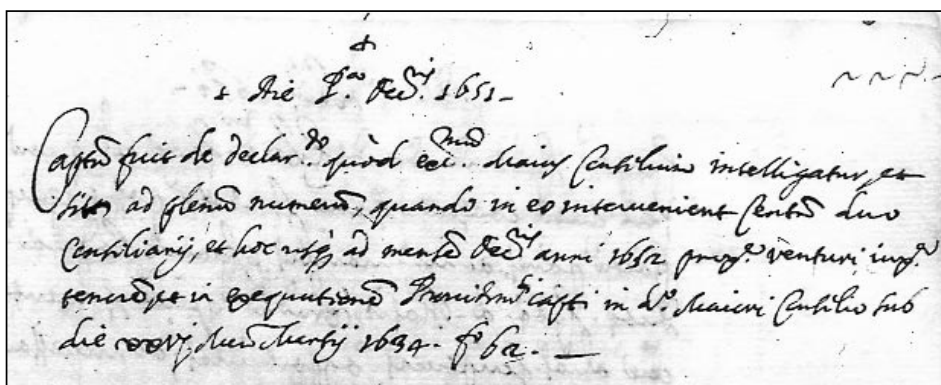 Die P.º Dec.ris 1651
Captũ fuit de declar.do quòd ecc.mũ Maius Consilium intelligatur, et
sit ad plenũ numerũ, quando in eo intervenient Centũ duo
Consiliarij, et hoc usq3 ad mensẽ Dec.ris anni 1652 prox.e venturi iux.a
tenorẽ, et in exequutionẽ capti in d.º Maiori Consilio sub
die xxvj Martij 1634. f.º 62.